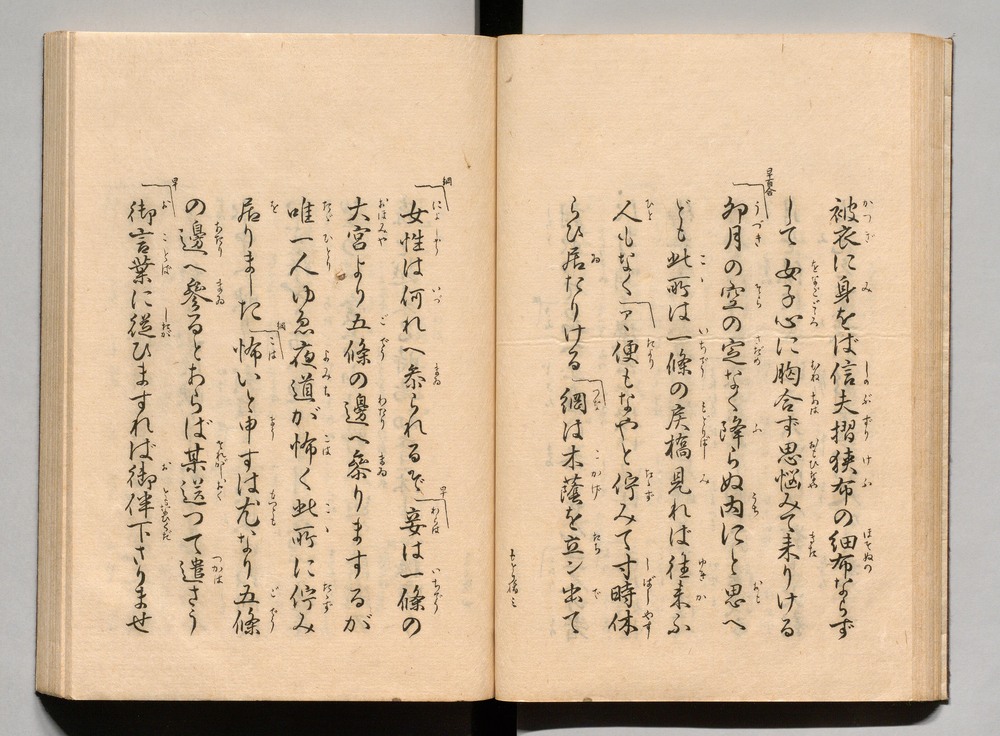 被衣に身をば信夫摺狭布の細布ならず
して女子心に胸合ず思悩みて来りける
早百合
卯月の空の定なく降らぬ内にと思へ
ども此所は一條の戻橋見れば往来ふ
人もなくアヽ便もなやと佇みて寸時休
らひ居たりける綱は木蔭を立ン出て
綱
女性は何れへ参られるぞ妾は一條の
早
大宮より五條の邊へ参りまするが
唯一人ゆゑ夜道が怖く此所に佇み
居りました怖いと申すは尤なり五條
綱
の邊へ参るとあらば某送つて遣さう
早
御言葉に従ひますれば御伴下さりませ